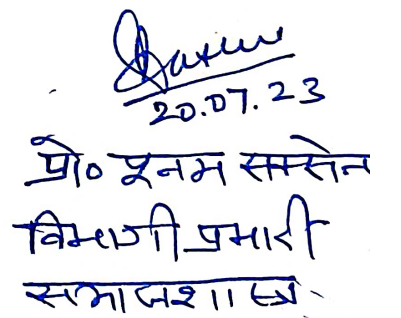 Saxena
20.07.23
प्रो० पूनम सक्सेना
विभागीय प्रभारी
समाजशास्त्र